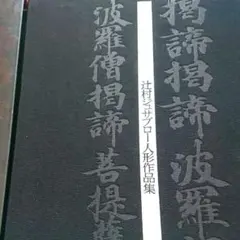 揭諦揭諦波羅
辻村ジュサブロー人形作品集
波羅僧揭諦菩提薩